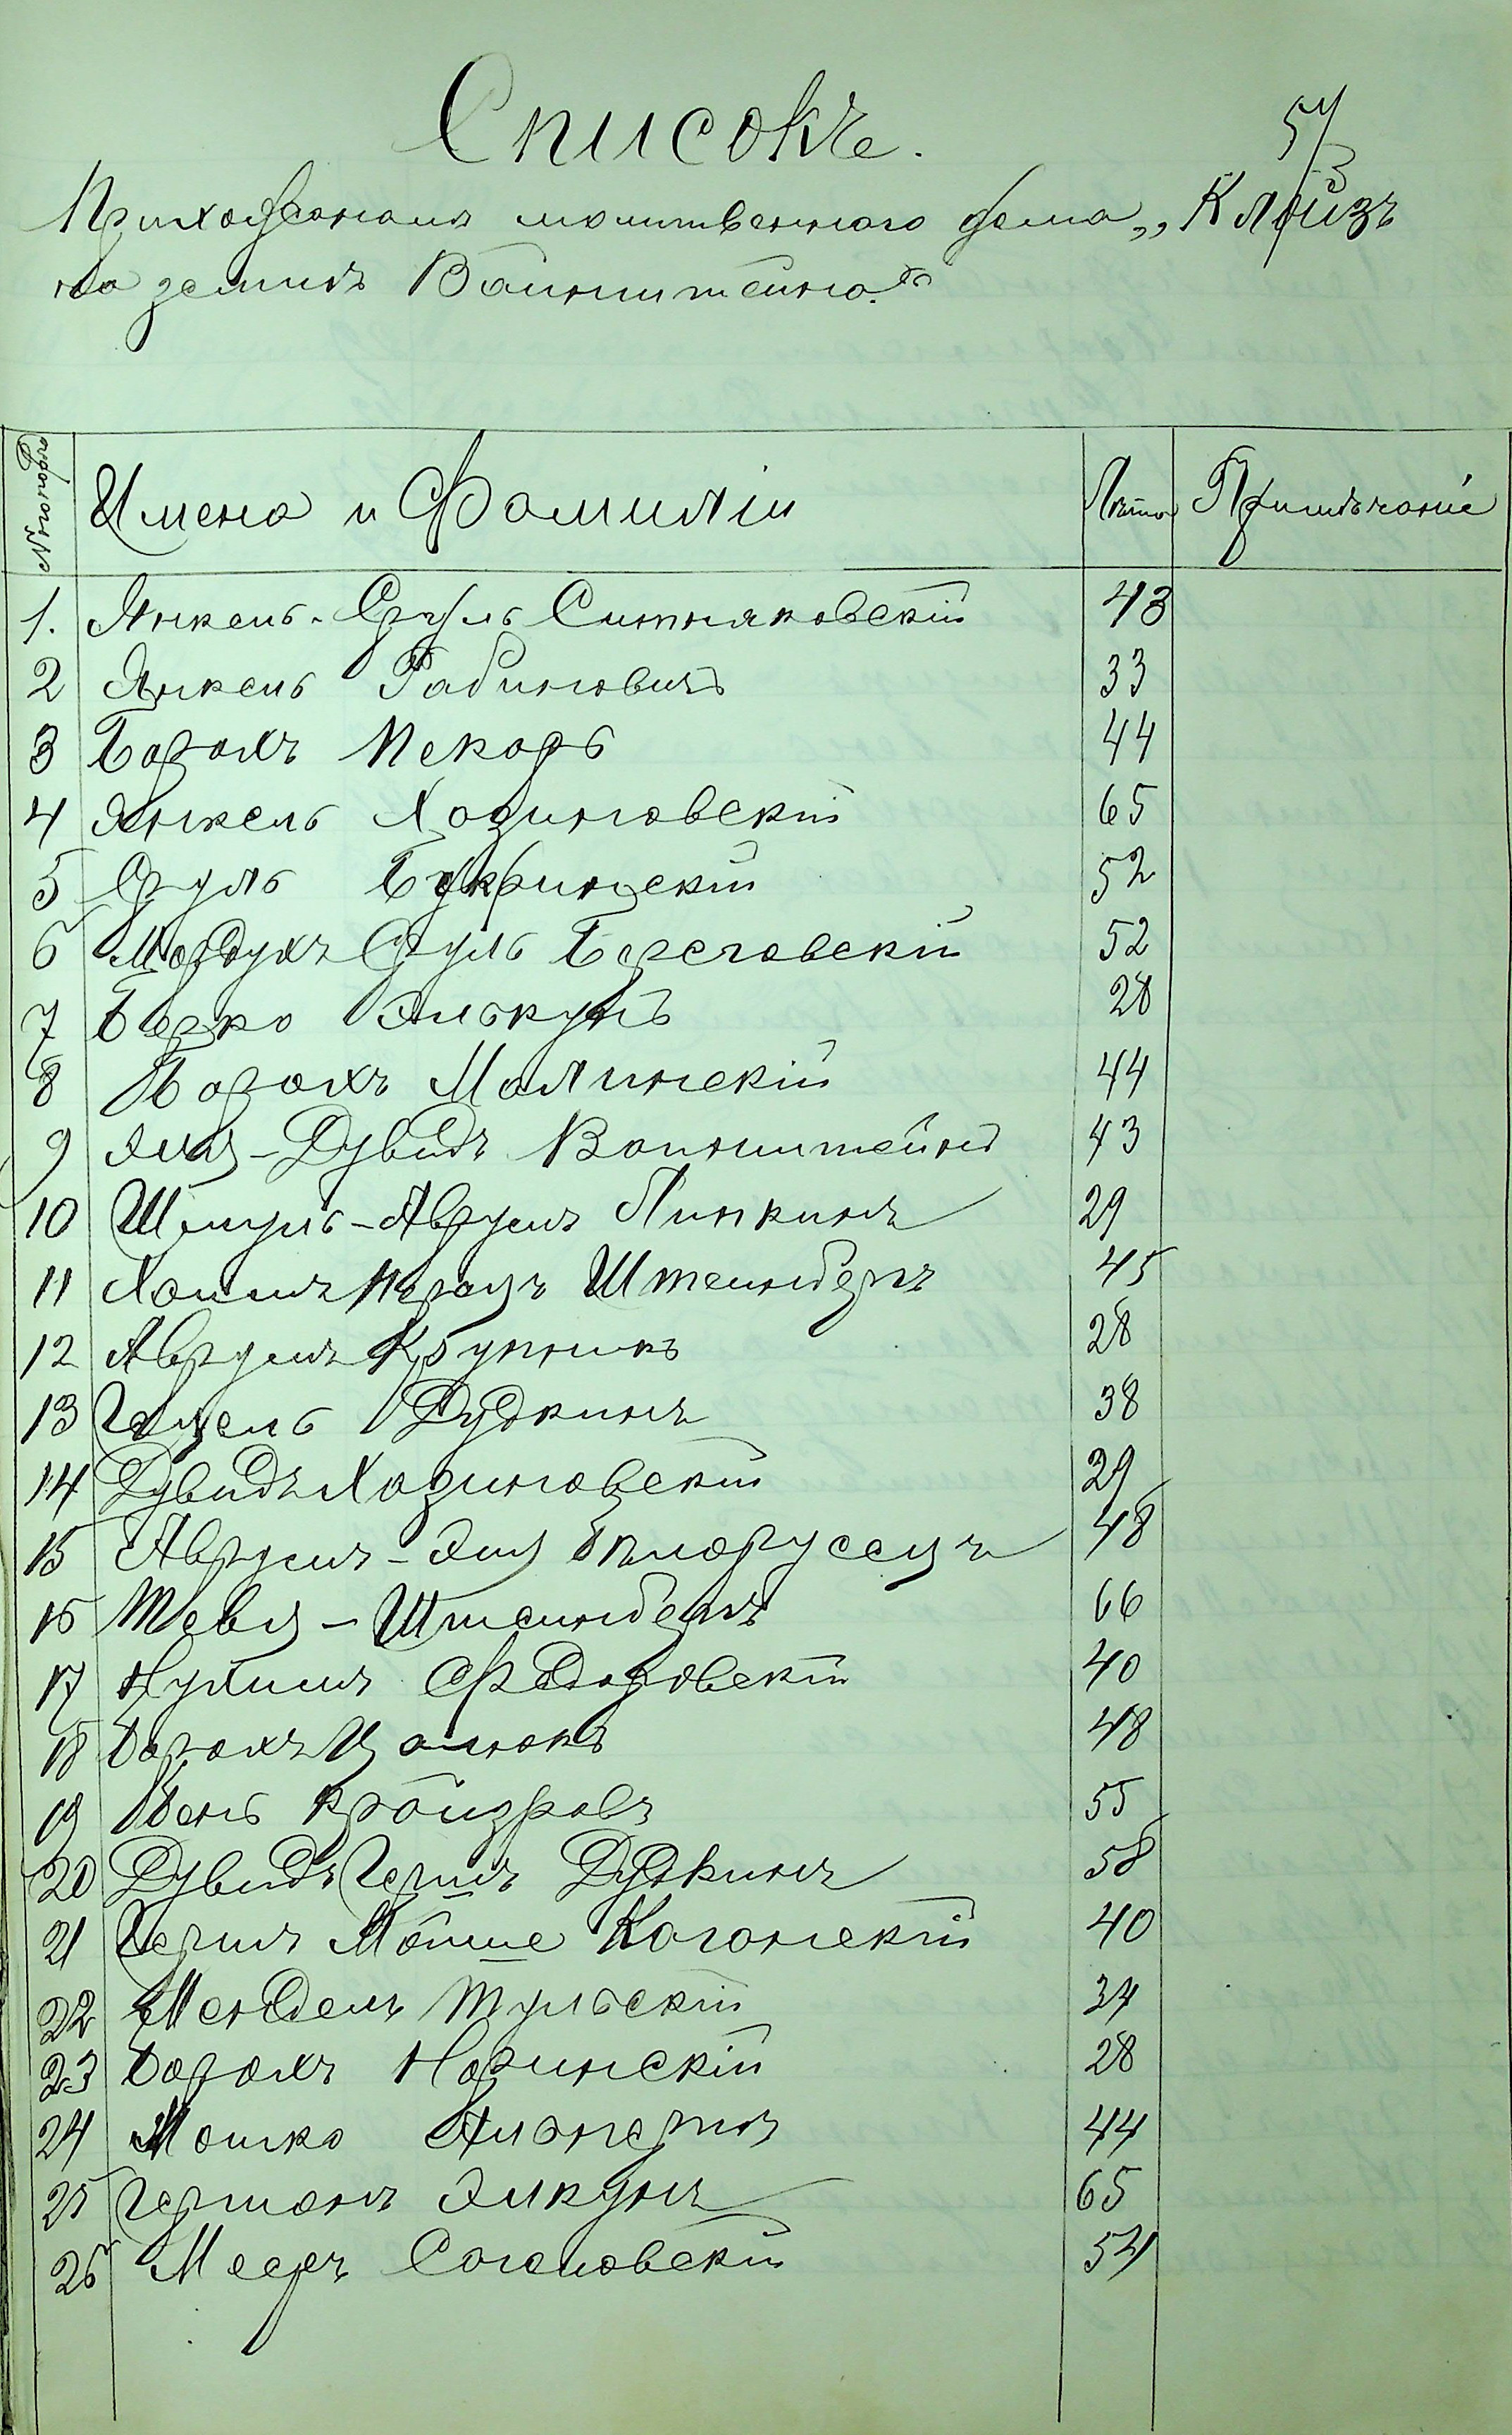 Списокъ.
57
Прихожанамъ молитвеннаго дома „Клойзъ
на земли Вайнштейна.“
№№ по порядку
Имена и Фамиліи
Лѣта
Примѣчаніе
1. Янкель-Сруль Ситняковскій 43
2 Янкель Рабиновичъ 33
3 Борохъ Пекарь 44
4 Янкель Хазиновскій 65
5 Сруль Букринскій 52
6 Мордухъ Сруль Береговскій 52
7 Берко Элькунъ 28
8 Борохъ Малинскій 44
9 Эля-Дувидъ Вайнштейнъ 43
10 Шмуль-Аврумъ Липкинъ 29
11 Хаимъ Перецъ Штейнбергъ 45
12 Аврумъ Крупникъ 28
13 Гецель Дудкинъ 38
14 Дувидъ Хазиновскій 29
15 Аврумъ-Эля Бѣлорусецъ 48
16 Тевя-Штейнбергъ 66
17 Нухимъ Федоровскій 40
18 Борохъ Цалюкъ 48
19 Бень 55
20 Дувидъ Гершъ Дудкинъ 58
21 Гершъ Мойше Каганскій 40
22 Мендель Тульскій 34
23 Борохъ Норинскій 28
24 Мошко Альперинъ 44
25 Германъ Элкунъ 65
26 Мееръ Соголовскій 54